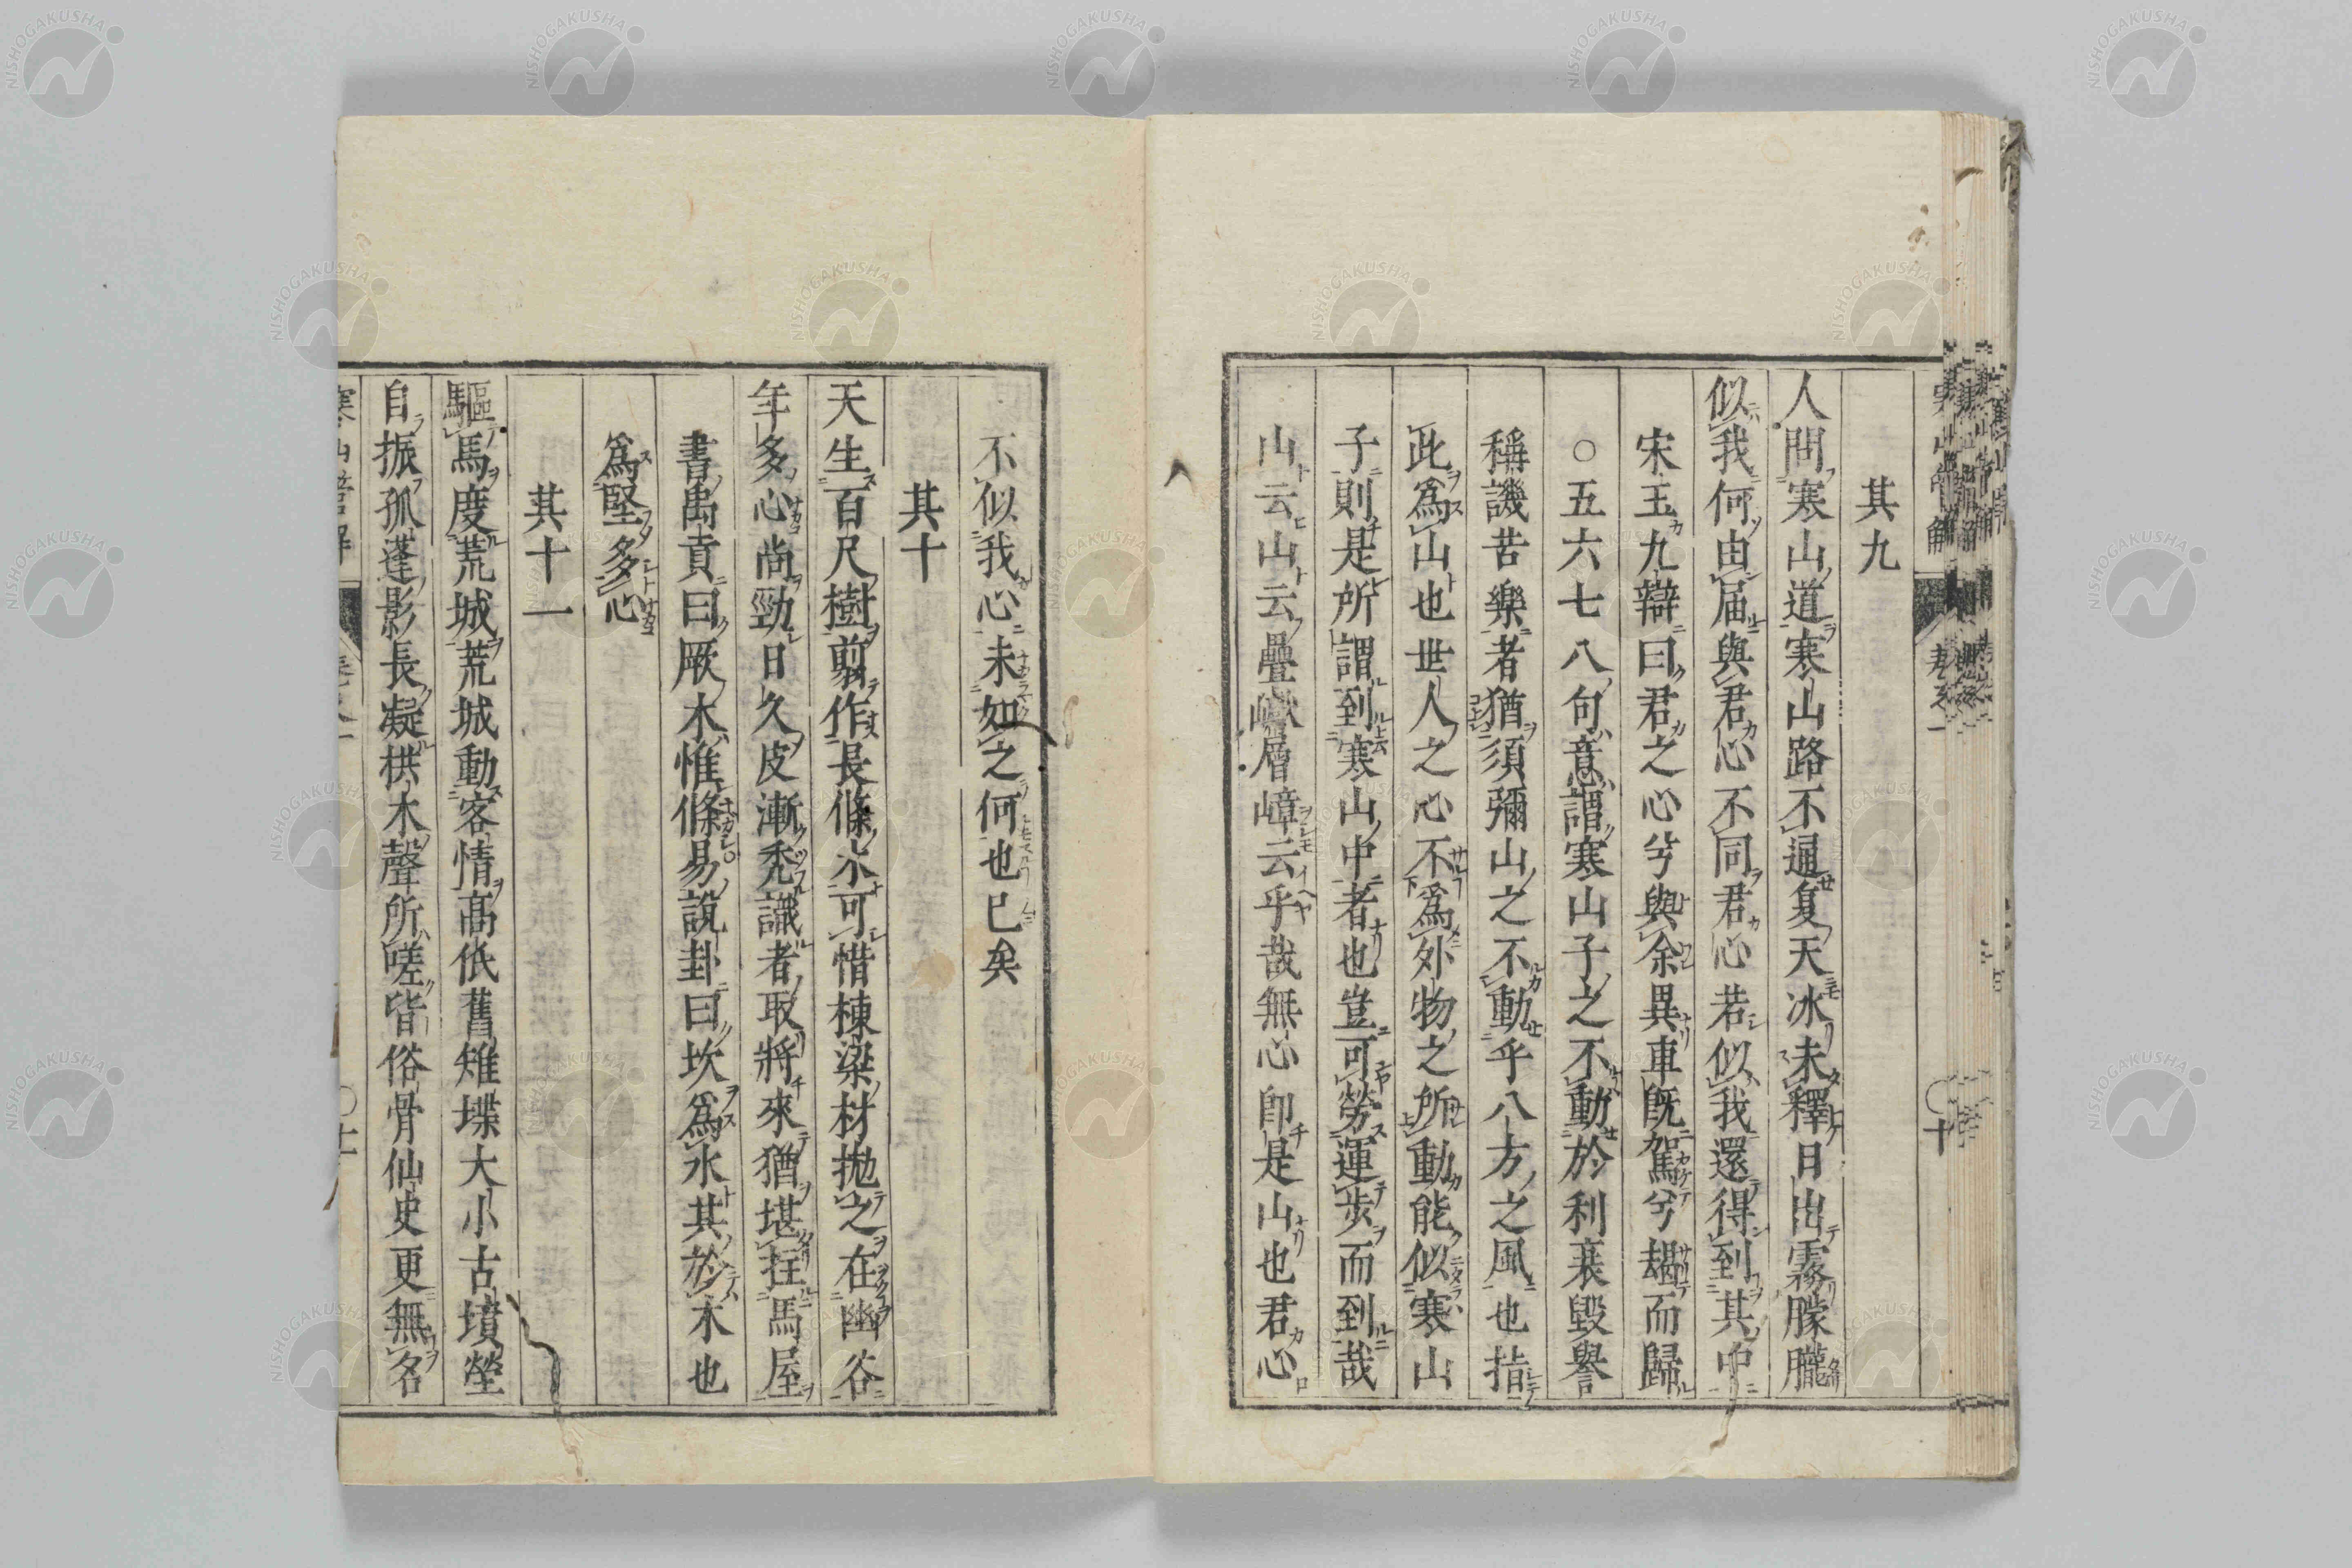 其九
人問寒山道寒山路不通夏天冰未釋日出霧朦朧
似我何由届與君心不同君心若似我還得到其中
宋玉九辯曰君之心兮與余異車既駕兮朅而歸
○五六七八句意謂寒山子之不動於利衰毀譽
稱譏苦樂者猶須彌山之不動乎八方之風也指
此為山也世人之心不為外物之所動能似寒山
子則是所謂到寒山中者也豈可勞運步而到哉
山云山云疊巘層嶂云乎哉無心即是山也君心
不似我心未如之何也已矣
其十
天生百尺樹剪作長條木可惜棟梁材拋之在幽谷
年多心尚勁日久皮漸禿識者取將來猶堪拄馬屋
書禹貢曰厥木惟條易說卦曰坎為水其於木也
為堅多心
其十一
驅馬度荒城荒城動客情高低舊雉堞大小古墳塋
自振孤蓬影長凝拱木聲所嗟皆俗骨仙史更無名
NISHOGAKUSHA